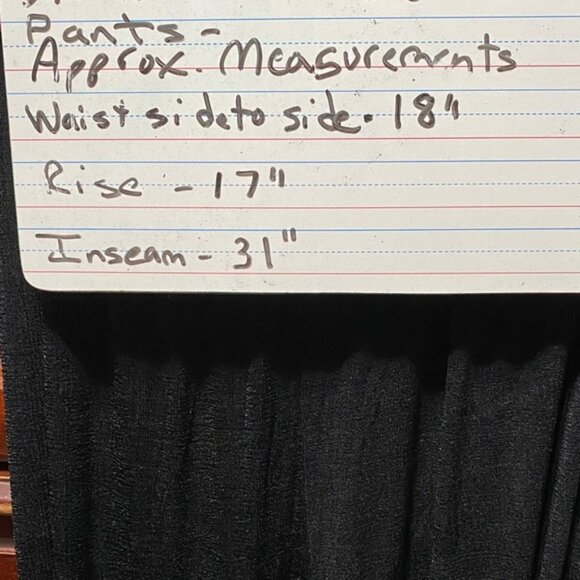 Pants -
Approx. Measurements
Waist side to side - 18"
Rise - 17"
Inseam - 31"